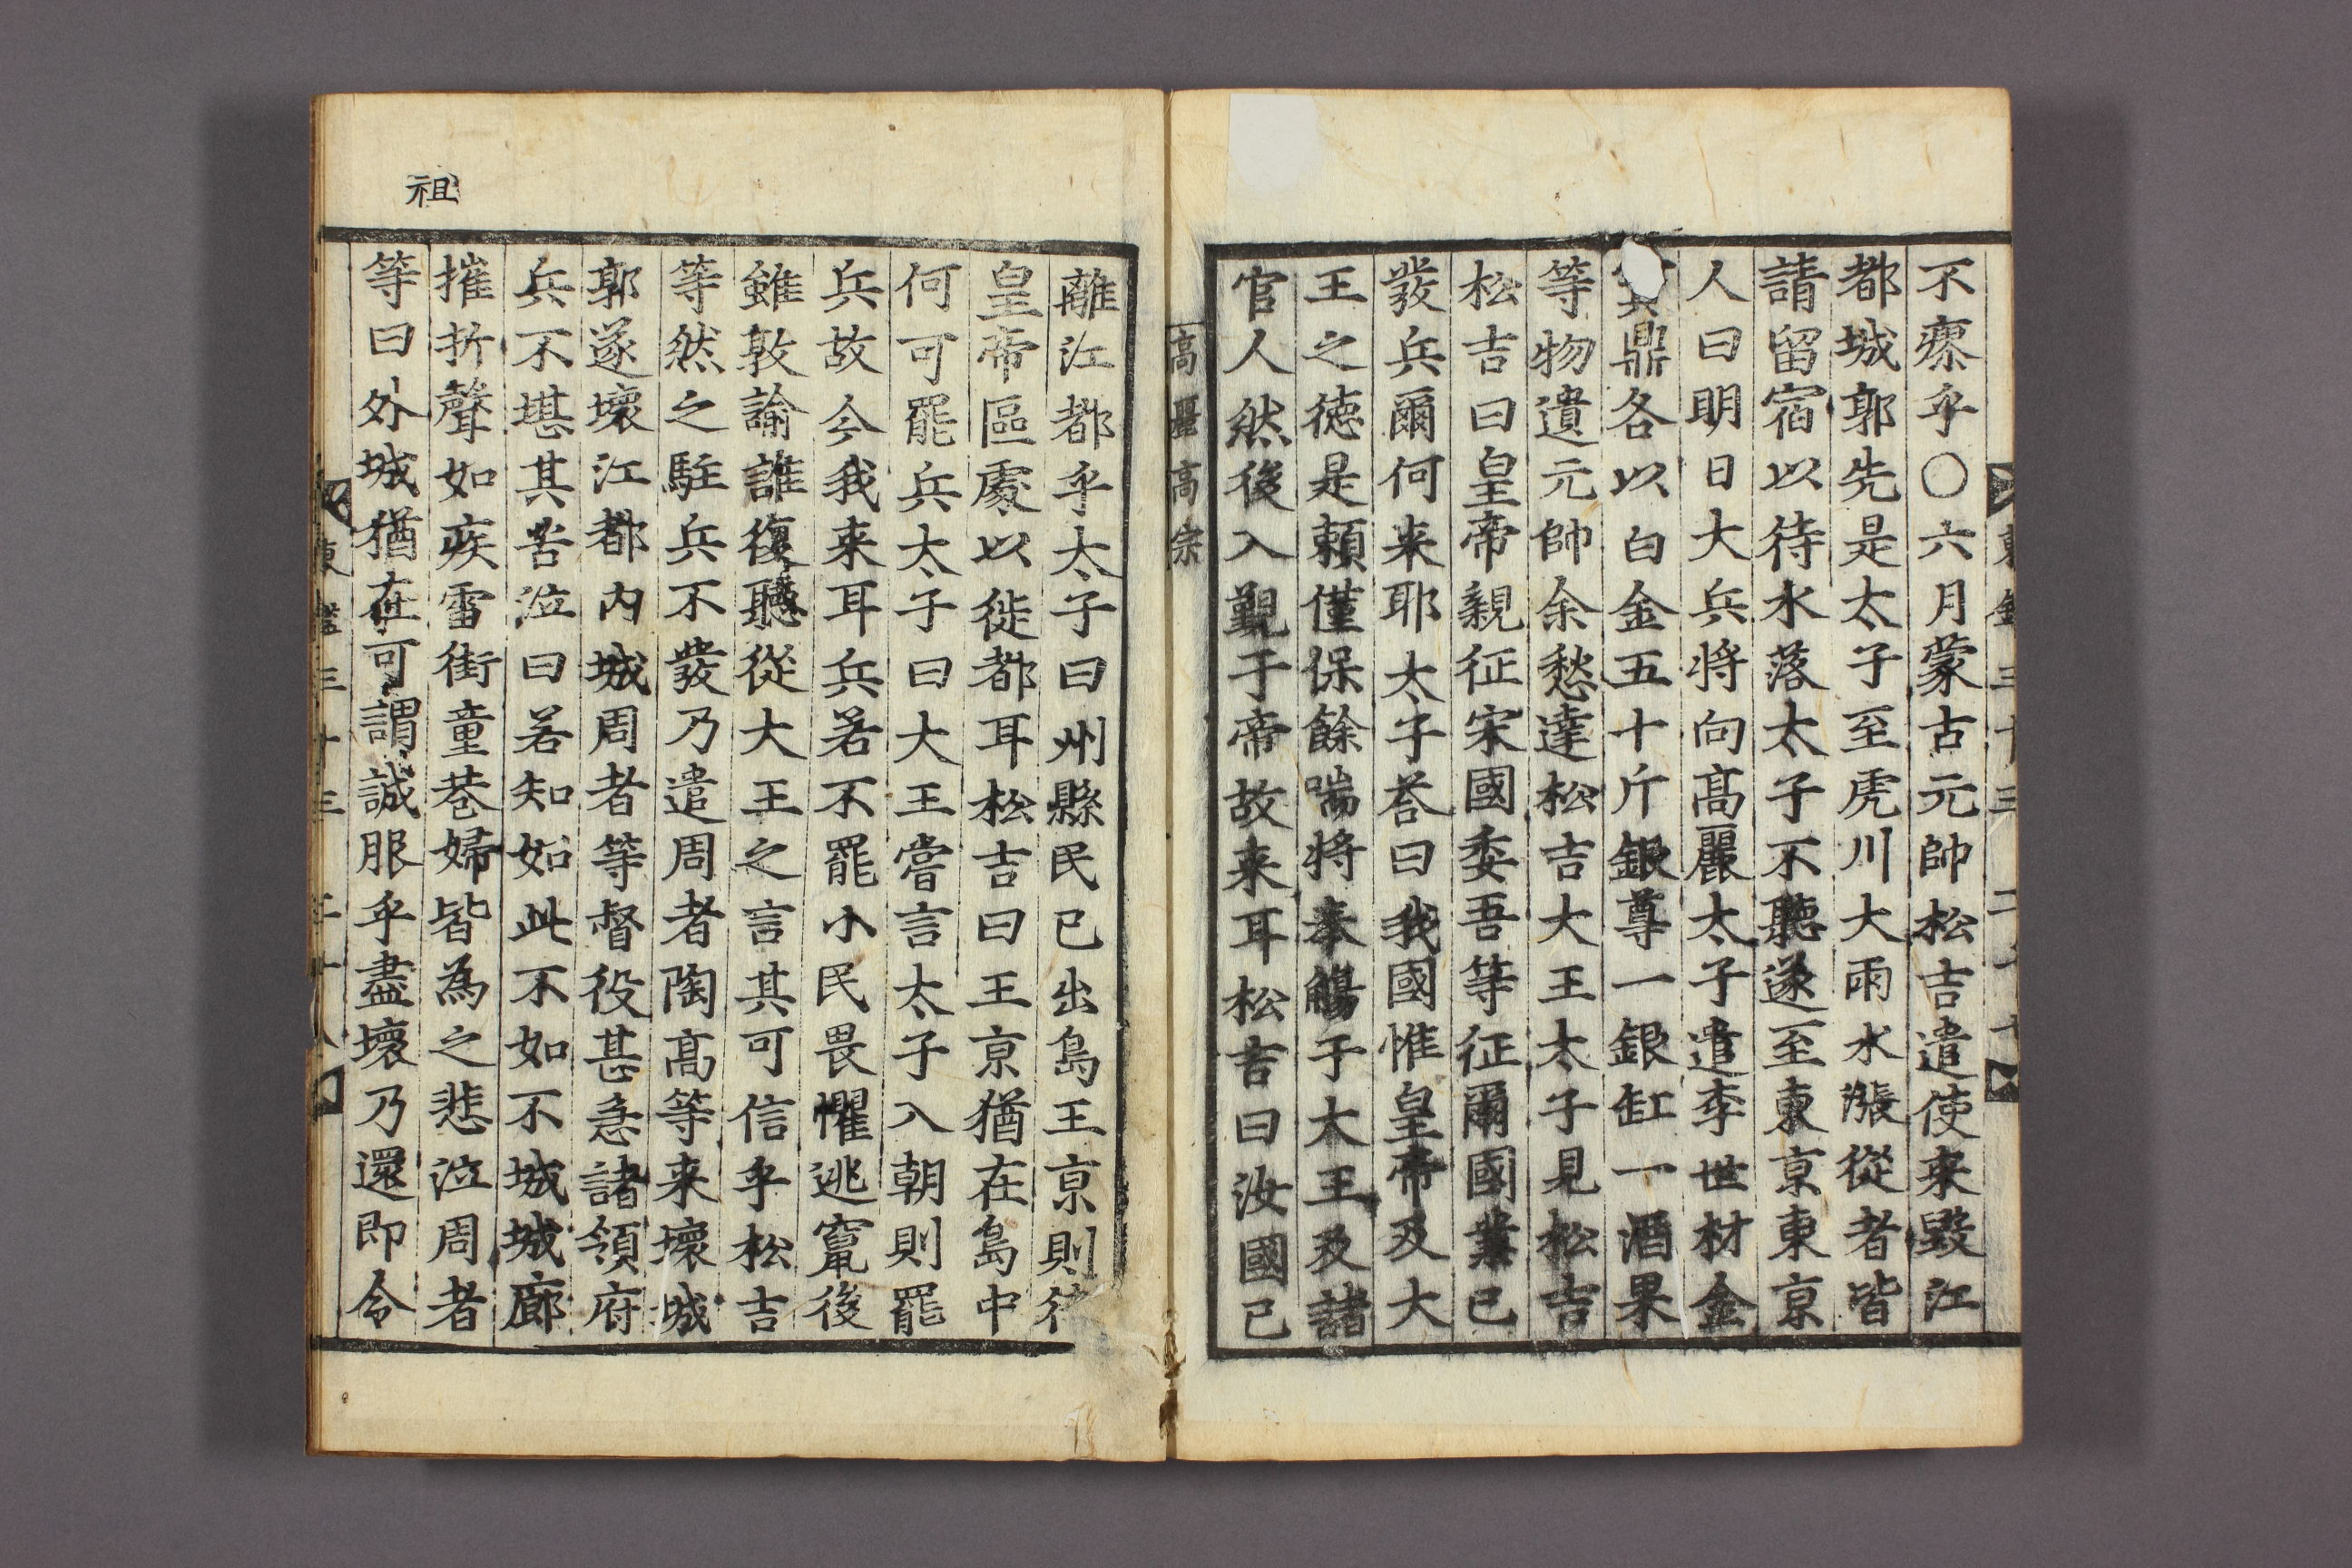 不瘳乎○六月蒙古元帥松吉遣使来毀江
都城郭先是太子至虎川大雨水漲從者皆
請留宿以待水落太子不聽遂至東京東京
人曰明日大兵將向髙麗太子遣李世材金
鼎各以白金五十斤銀尊一銀缸一酒果
等物遺元帥余愁達松吉大王太子見松吉
松吉曰皇帝親征宋國委吾等征爾國業已
發兵爾何来耶太子荅曰我國惟皇帝及大
王之徳是頼僅保餘喘將奉觴于大王及諸
官人然後入覲于帝故来耳松吉曰汝國已
高麗高宗
離江都乎太子曰州縣民已出島王京則
皇帝區處以徙都耳松吉曰王京猶在島中
何可罷兵太子曰大王嘗言太子入朝則罷
兵故今我来耳兵若不罷小民畏懼逃竄後
雖敦諭誰復聽從大王之言其可信乎松吉
等然之駐兵不發乃遣周者陶髙等来壞城
郭遂壞江都內城周者等督役甚急諸領府
兵不堪其苦泣曰若知如此不如不城城廊
摧折聲如疾雷街童巷婦皆為之悲泣周者
等曰外城猶在可謂誠服乎盡壞乃還即令
祖